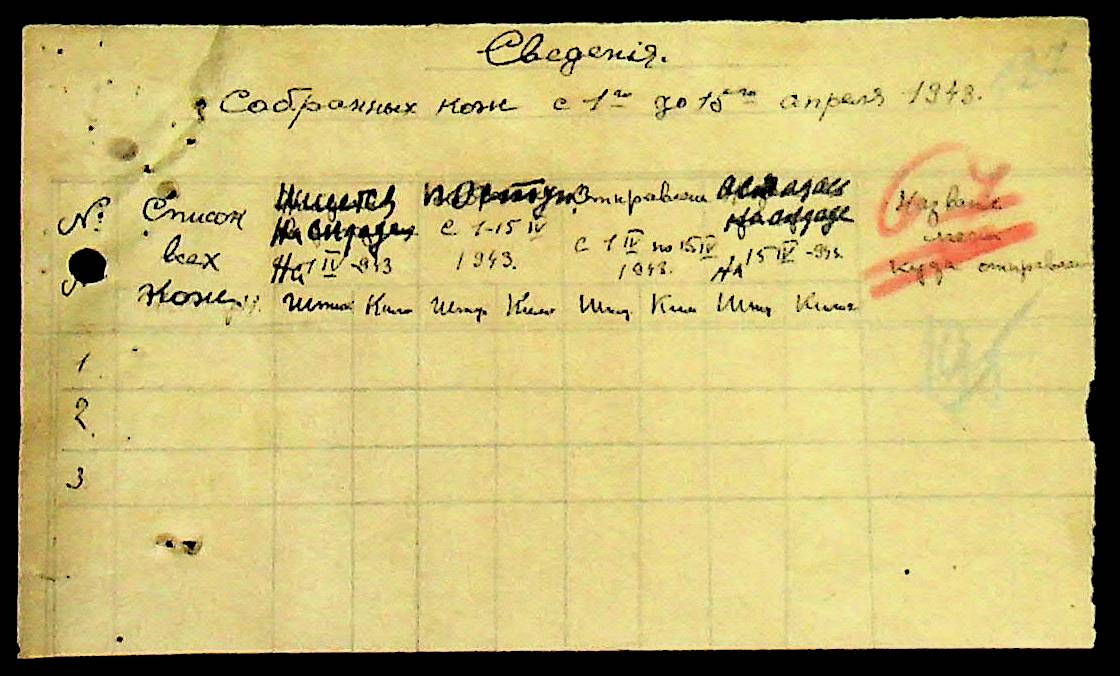 Сведенія.
Собранных кож с 1го до 15го апреля 1943.
№ Список всех кож
Имеется на складе на 1 IV -943
поступ с 1-15 IV 1943.
Отправлен с 1 IV по 15 IV 1943.
осталось на складе на 15 IV -943.
Название места куда отправлен
Штук Кило Штук Кило Штук Кило Штук Кило
1.
2.
3